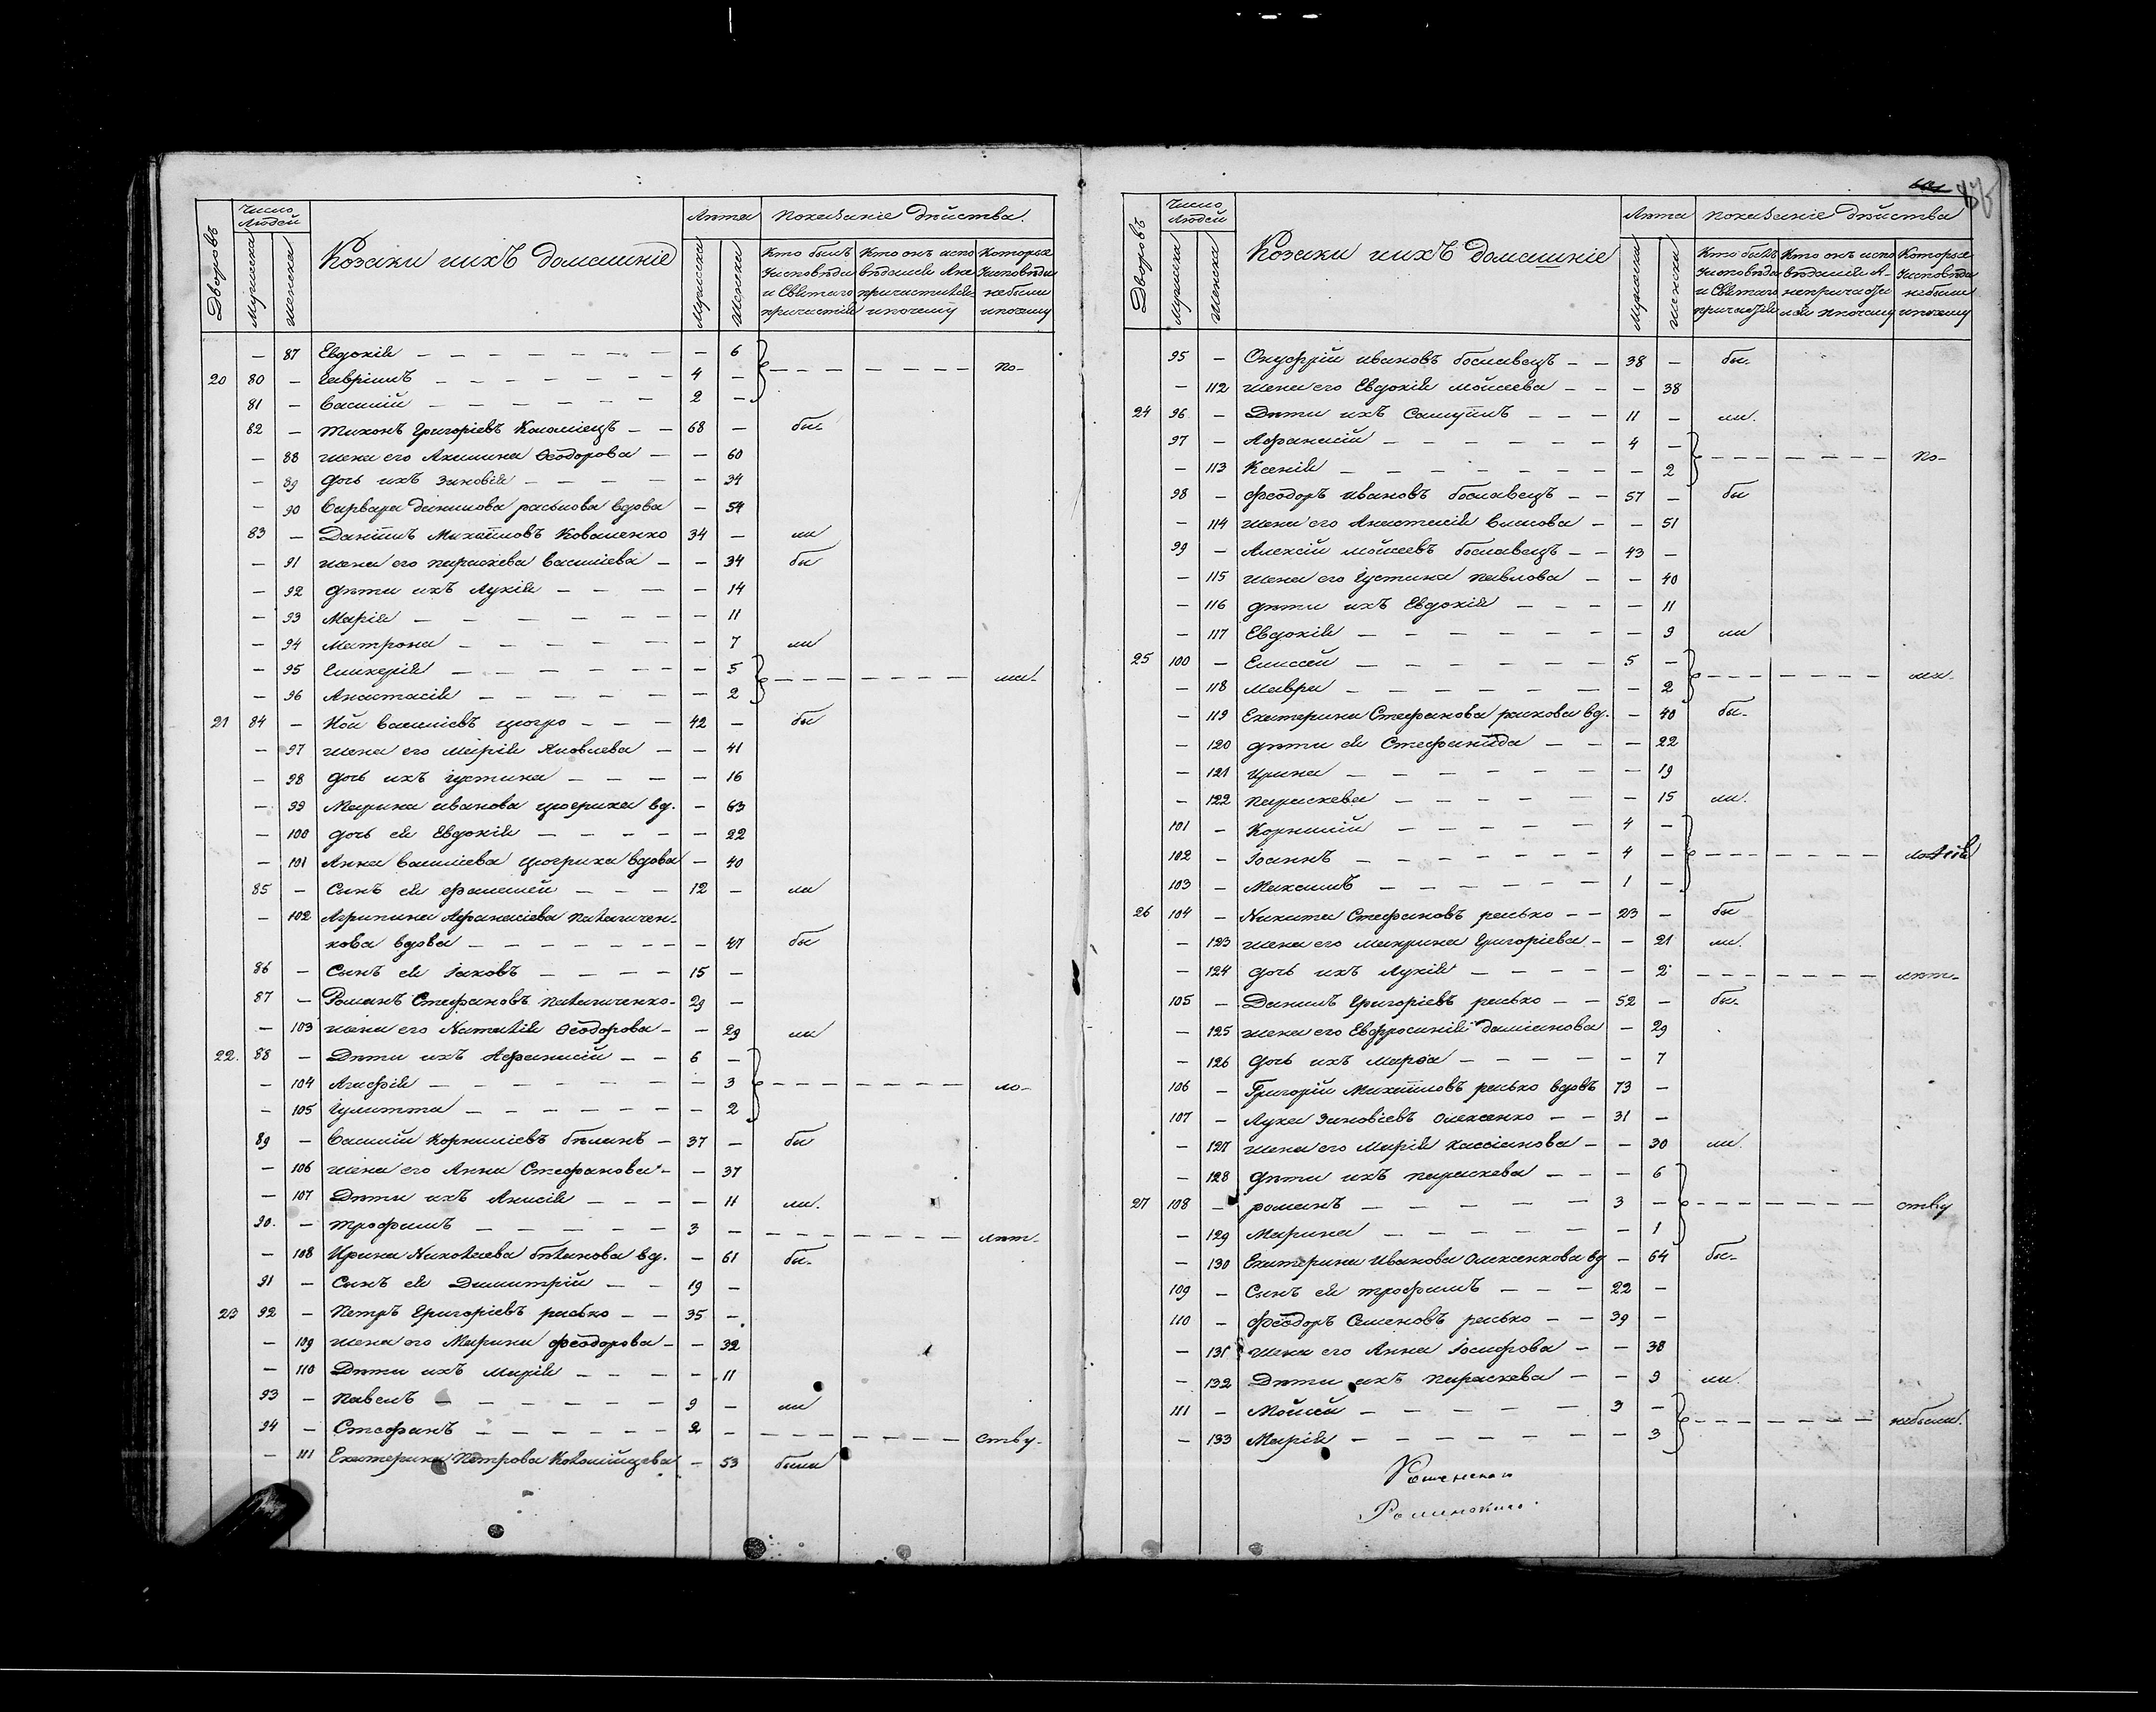 Дворовъ
Число Людей
Мужеска
Женска
Козаки ихъ домашніе
Лѣта
Мужеска
Женска
Показаніе дѣйства.
Кто былъ
Кто онъ испо
Которые
Уисповѣди
вѣдался
Уисповѣди
и Святаго
небыли
причастія
ипочему
ипочему
— 87 Евдокія — 6
20 80 — Гавріилъ 4 — по-
81 — Василій 2 —
82 — Тихонъ Григоріевъ Коломіецъ 68 — бы-
— 88 жена его Акилина Ѳеодорова — 60
— 89 дочь ихъ Зиновія — 34
— 90 Варвара Данилова раськова вдова — 54
83 — Даніилъ Михайловъ Коваленко 34 — ли
— 91 жена его параскева Василіева — 34 бы
— 92 дѣти ихъ Лукія — 14
— 93 Марія — 11
— 94 Матрона — 7 ли
— 95 Гликерія — 5
— 96 Анастасія — 2
21 84 — Ной Василіевъ 42 — бы
— 97 жена его Марія Яковлева — 41
— 98 дочь ихъ Іустина — 16
— 99 Марина иванова вд. — 63
— 100 дочь ея Евдокія — 22
— 101 Анна Василіева вдова — 40
85 — Сынъ ея 12 — ли
— 102 Агрипина Афанасіева Палагичен-
кова вдова — 47 бы
86 — Сынъ ея Іаковъ 15 —
87 — Романъ Стефановъ Палагиченко 29 —
— 103 жена его Наталія Ѳеодорова — 29 ли
22. 88 — Дѣти ихъ Афанасій 6 —
— 104 Агафія — 3 ло-
— 105 Іулитта — 2
89 — Василій Корниліевъ бѣланъ 37 — бы
— 106 жена его Анна Стефанова — 37
— 107 Дѣти ихъ Анисія — 11 ли.
90. — Трофимъ 3 — лѣт-
— 108 Ирина Николаева бѣланова вд. — 61 бы-
91 — Сынъ ея Димитрій 19 —
23 92 — Петръ Григоріевъ расько 35 —
— 109 жена его Марина Феодорова — 32
— 110 Дѣти ихъ Марія — 11
93 — Павелъ 9 — ли
94 — Стефанъ 2 — ству-
— 111 Екатерина Петрова Коломійцева — 53 были
Дворовъ
Число Людей
Мужеска
Женска
Козаки ихъ домашніе
Лѣта
Мужеска
Женска
Показаніе дѣйства
Кто былъ
Кто онъ испо
Которые
Уисповѣди
вѣдался
Уисповѣди
и Святаго
небыли
ипочему
ипочему
95 — Онуфрій ивановъ богславецъ 38 — бы-
— 112 жена его Евдокія Мойсеева — 38
24 96 — Дѣти ихъ Самуилъ 11 — ли.
97 — Афанасій 4 —
— 113 Ксенія — 2 по-
98 — Феодоръ ивановъ богславецъ 57 — бы
— 114 жена его Анастасія Власова — 51
99 — Алексій Мойсеевъ богславецъ 43 —
— 115 жена его Іустина Павлова — 40
— 116 дѣти ихъ Евдокія — 11
— 117 Евдокія — 9 ли
25 100 — Елисей 5 —
— 118 Мавра — 2
— 119 Екатерина Стефанова вд. — 40 бы-
— 120 дѣти ея Стефанида — 22
— 121 Ирина — 19
— 122 Параскева — 15 ли.
101 — Корнилій 4 —
102 — Іоаннъ 4 —
103 — Максимъ 1 —
26 104 — Никита Стефановъ расько 23 — бы
— 123 жена его Макрина Григоріева — 21 ли.
— 124 дочь ихъ Лукія — 2 лѣт-
105 — Даніилъ Григоріевъ расько 52 — бы-
— 125 жена его Евфросинія Даміанова — 29
— 126 дочь ихъ Марѳа — 7
106 — Григорій Михайловъ расько вдовъ 73 —
107 — Лука Зиновіевъ Олексенко 31 —
— 127 жена его Марія Кассіанова — 30 ли.
— 128 дѣти ихъ параскева — 6
27 108 — романъ 3 — ству
— 129 Марина — 1
— 130 Екатерина Иванова Олексенкова вд — 64 бы-
109 — Сынъ ея Трофимъ 22 —
110 — Феодоръ Семеновъ расько 39 —
— 131 жена его Анна Іосифова — 38
— 132 Дѣти ихъ Параскева — 9 ли.
111 — Мойсей 3 — небыли.
— 133 Марія — 3